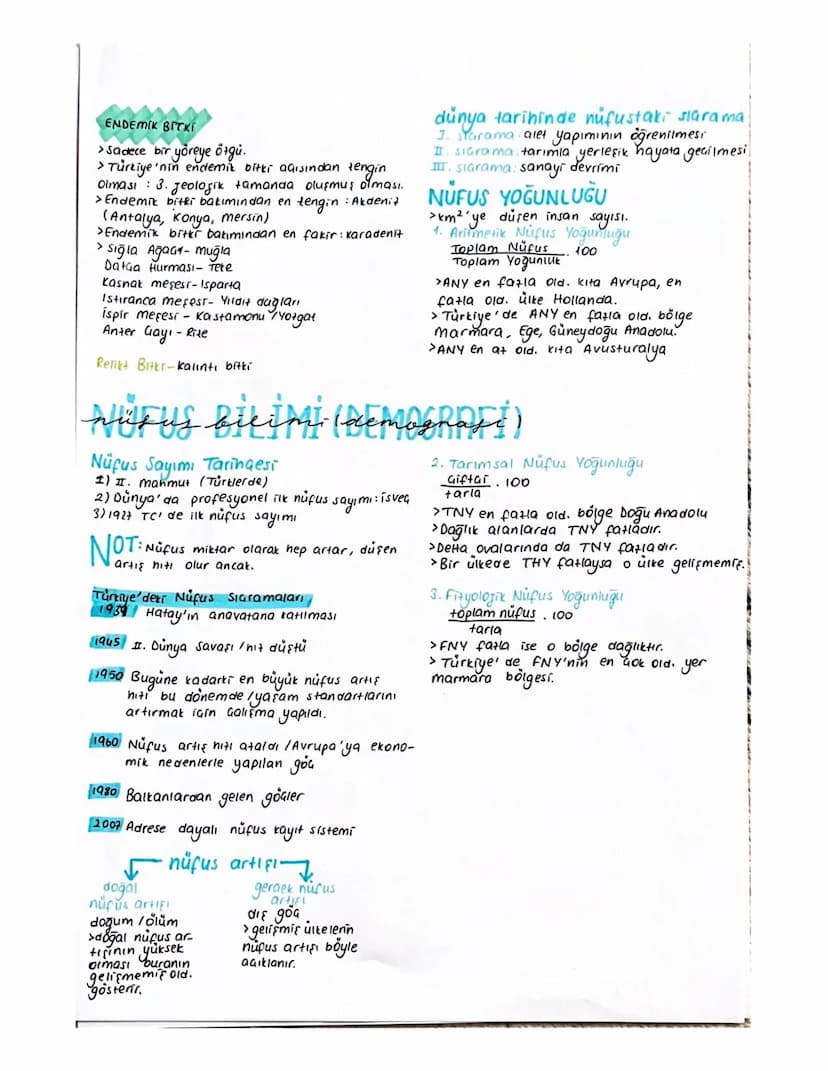 ENDEMİK BİTKİ
>Sadece bir yöreye özgü.
>Türkiye'nin endemik bitki açısından zengin
olması : 3. jeolojik zamanda oluşmuş olması.
>Endemik bitki bakımından en zengin : Akdeniz
(Antalya, Konya, mersin)
>Endemik bitki bakımından en fakir : Karadeniz
> Sığla Ağacı- muğla
Datça Hurması- Teke
Kasnak meşesi-Isparta
Istıranca meşesi- Yıldız dağları
İspir meşesi - Kastamonu / Yozgat
Anzer Çayı - Rize
Relikt Bitki-kalıntı bitki
dünya tarihinde nüfustaki sıçrama
I. sıçrama : alet yapımının öğrenilmesi
II. sıçrama : tarımla yerleşik hayata geçilmesi
III. sıçrama : sanayi devrimi
NÜFUS YOĞUNLUĞU
>km²'ye düşen insan sayısı.
1. Aritmetik Nüfus Yoğunluğu
Toplam Nüfus . 100
Toplam Yoğunluk
>ANY en fazla old. kıta Avrupa, en
fazla old. ülke Hollanda.
> Türkiye'de ANY en fazla old. bölge
Marmara, Ege, Güneydoğu Anadolu.
>ANY en az old. kıta Avusturalya
NÜFUS BİLİMİ (DEMOGRAFİ)
nüfus bilimi (demografi)
Nüfus Sayımı Tarihçesi
1) II. mahmut (Türklerde)
2) Dünya'da profesyonel ilk nüfus sayımı : isveç
3) 1927 TC'de ilk nüfus sayımı
NOT: Nüfus miktar olarak hep artar, düşen
artış hızı olur ancak.
Türkiye'deki Nüfus Sıçramaları
1939 Hatay'ın anavatana katılması
1945 II. Dünya Savaşı / hız düştü
1950 Bugüne kadarki en büyük nüfus artış
hızı bu dönemde / yaşam standartlarını
artırmak için çalışma yapıldı.
1960 Nüfus artış hızı azaldı / Avrupa'ya ekono-
mik nedenlerle yapılan göç
1980 Balkanlardan gelen göçler
2007 Adrese dayalı nüfus kayıt sistemi
nüfus artışı
doğal
nüfus artışı
doğum / ölüm
>doğal nüfus ar-
tışının yüksek
olması buranın
gelişmemiş old.
gösterir.
gerçek nüfus
artışı
dış göç
> gelişmiş ülkelerin
nüfus artışı böyle
açıklanır.
2. Tarımsal Nüfus Yoğunluğu
Çiftçi . 100
tarla
>TNY en fazla old. bölge Doğu Anadolu
>Dağlık alanlarda TNY fazladır.
>Delta ovalarında da TNY fazladır.
>Bir ülkede TNY fazlaysa o ülke gelişmemiş.
3. Fizyolojik Nüfus Yoğunluğu
toplam nüfus . 100
tarla
>FNY fazla ise o bölge dağlıktır.
> Türkiye'de FNY'nin en çok old. yer
marmara bölgesi.